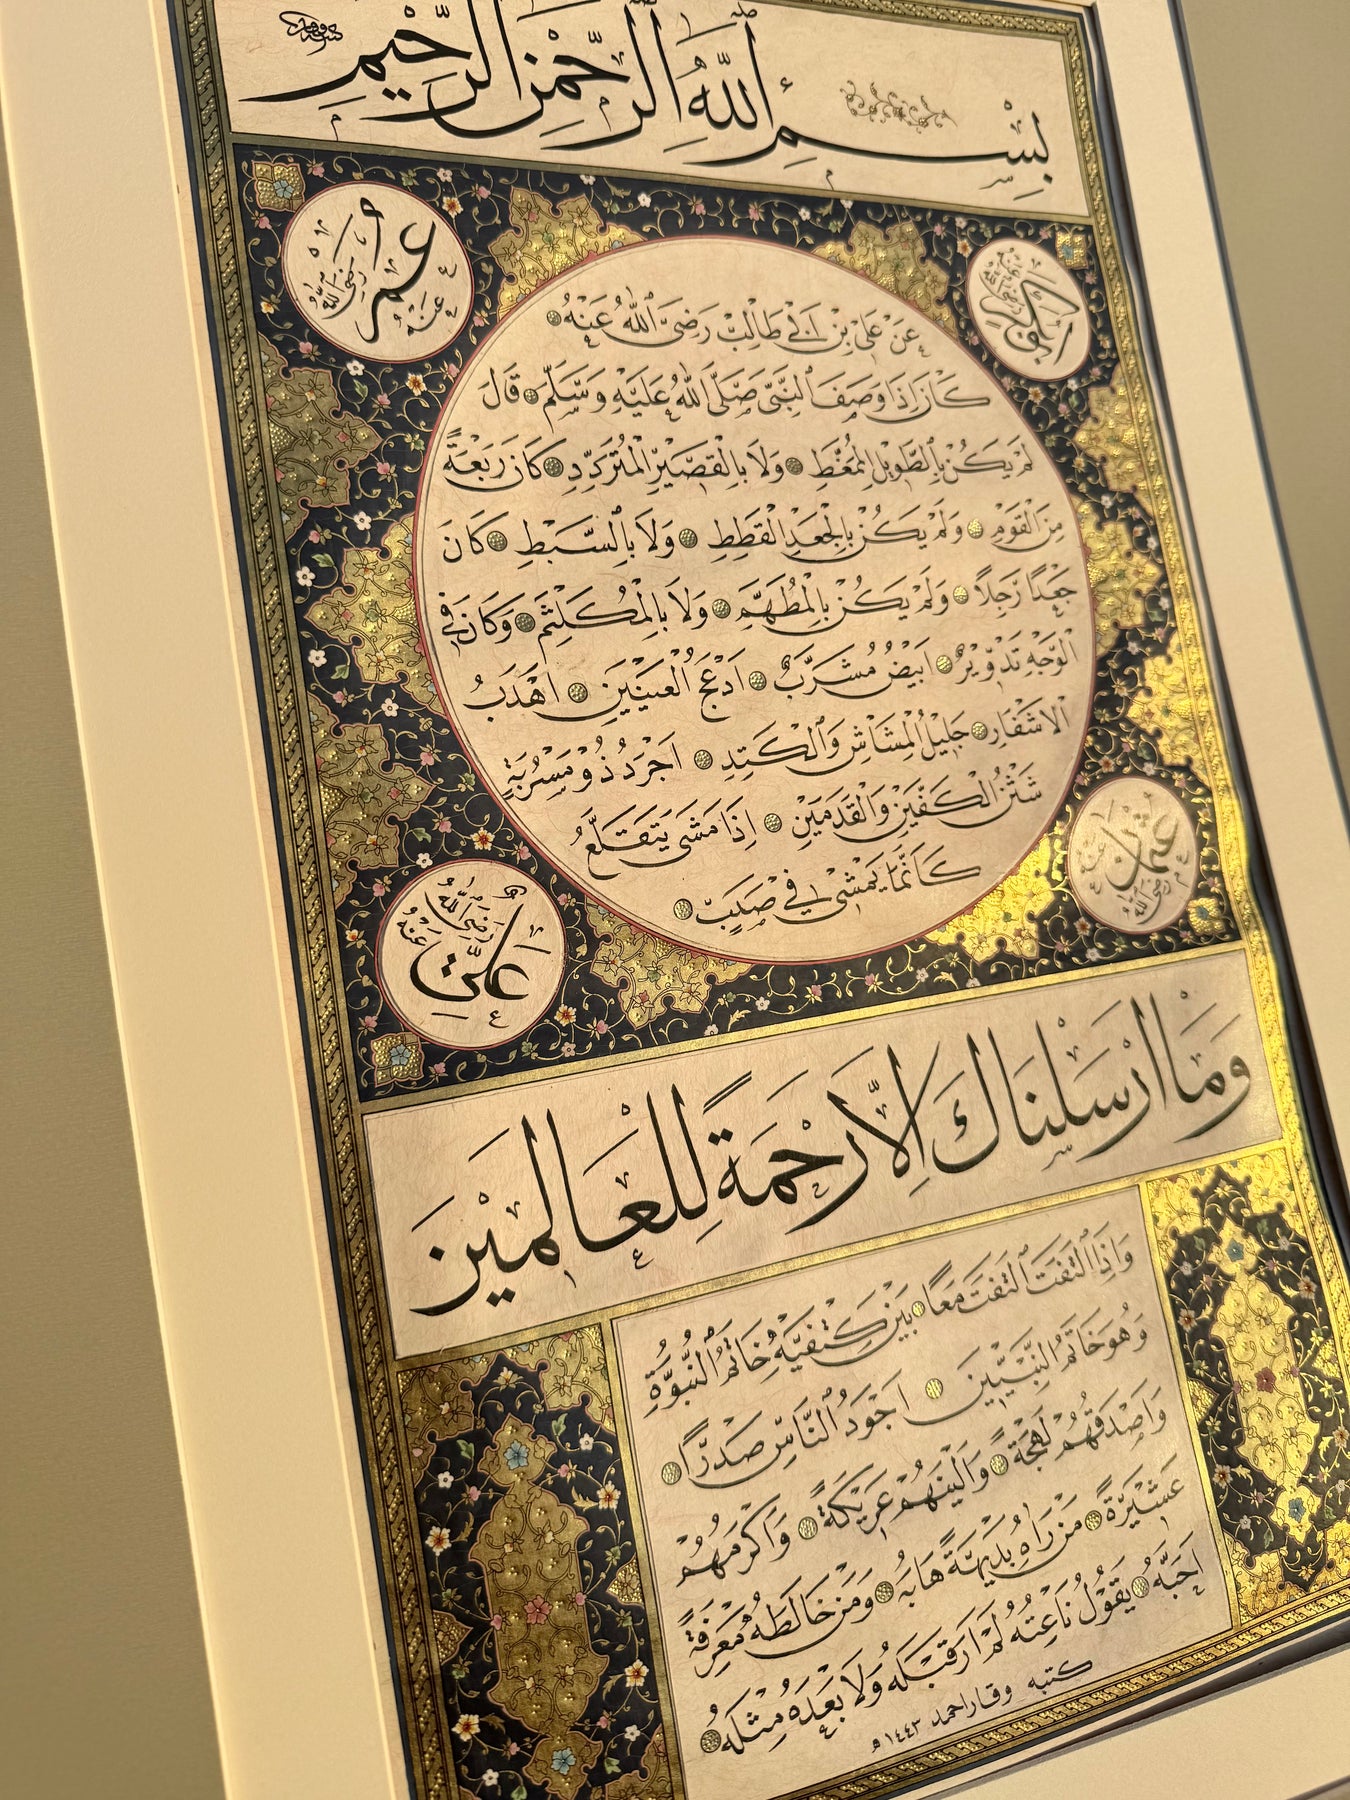 بِسْمِ اللّٰهِ الرَّحْمٰنِ الرَّحِيْمِ
ابوبكر
عُمَر رَضِيَ اللّٰهُ عَنْهُ
عَنْ عَلِيِّ بْنِ اَبِي طَالِبٍ رَضِيَ اللّٰهُ عَنْهُ
كَانَ اِذَا وَصَفَ النَّبِيَّ صَلَّى اللّٰهُ عَلَيْهِ وَسَلَّمَ قَالَ
لَمْ يَكُنْ بِالطَّوِيْلِ الْمُمَّغِطِ وَلَا بِالْقَصِيْرِ الْمُتَرَدِّدِ كَانَ رَبْعَةً
مِنَ الْقَوْمِ وَلَمْ يَكُنْ بِالْجَعْدِ الْقَطِطِ وَلَا بِالسَّبْطِ كَانَ
جَعْدًا رَجِلًا وَلَمْ يَكُنْ بِالْمُطَهَّمِ وَلَا بِالْمُكَلْثَمِ وَكَانَ فِي
الْوَجْهِ تَدْوِيْرٌ اَبْيَضُ مُشَرَّبٌ اَدْعَجُ الْعَيْنَيْنِ اَهْدَبُ
الْاَشْفَارِ جَلِيْلُ الْمُشَاشِ وَالْكَتِدِ اَجْرَدُ ذُوْ مَسْرُبَةٍ
شَثْنُ الْكَفَّيْنِ وَالْقَدَمَيْنِ اِذَا مَشَى يَتَقَلَّعُ
كَاَنَّمَا يَمْشِي فِي صَبَبٍ
عُثْمَان رَضِيَ اللّٰهُ
عَلِيّ رَضِيَ اللّٰهُ عَنْهُ
وَمَا اَرْسَلْنَاكَ اِلَّا رَحْمَةً لِلْعَالَمِيْنَ
وَاِذَا الْتَفَتَ الْتَفَتَ مَعًا بَيْنَ كَتِفَيْهِ خَاتَمُ النُّبُوَّةِ
وَهُوَ خَاتَمُ النَّبِيِّيْنَ اَجْوَدُ النَّاسِ صَدْرًا
وَاَصْدَقُهُمْ لَهْجَةً وَاَلْيَنُهُمْ عَرِيْكَةً وَاَكْرَمُهُمْ
عَشِيْرَةً مَنْ رَاٰهُ بَدِيْهَةً هَابَهُ وَمَنْ خَالَطَهُ مَعْرِفَةً
اَحَبَّهُ يَقُوْلُ نَاعِتُهُ لَمْ اَرَ قَبْلَهُ وَلَا بَعْدَهُ مِثْلَهُ
كتبه وقار احمد ١٤٤٣ه